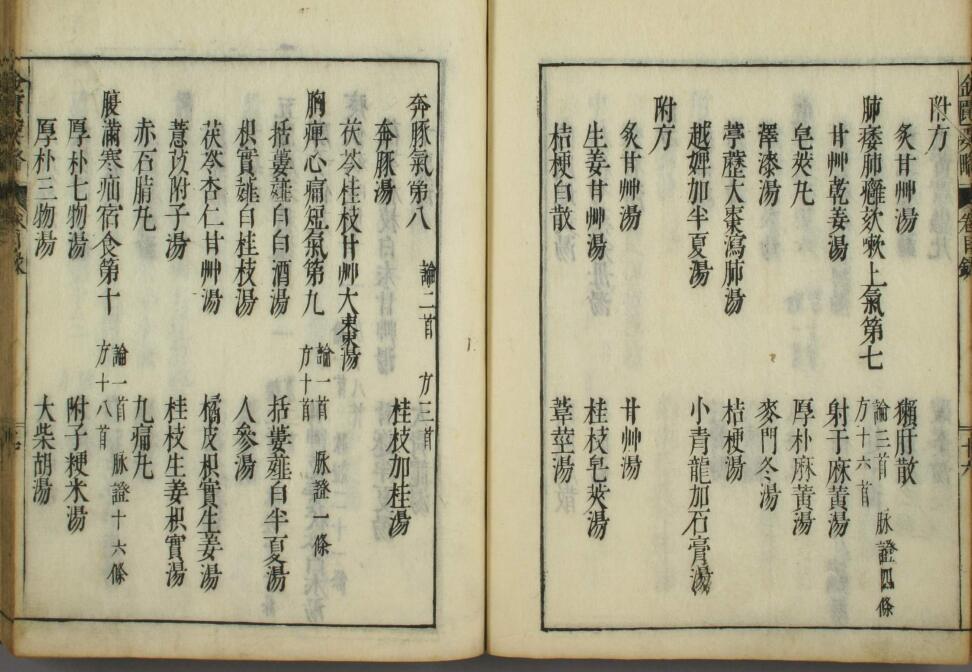 附方
炙甘艸湯 獺肝散
肺痿肺癰欬嗽上氣第七 論三首 脉證四條
方十六首
甘艸乾姜湯 射干麻黃湯
皂莢丸 厚朴麻黃湯
澤漆湯 麥門冬湯
葶藶大棗瀉肺湯 桔梗湯
越婢加半夏湯 小青龍加石膏湯
附方
炙甘艸湯 甘艸湯
生姜甘艸湯 桂枝皂莢湯
桔梗白散 葦莖湯
奔豚氣第八 論二首 方三首
奔豚湯 桂枝加桂湯
茯苓桂枝甘艸大棗湯
胸痺心痛短氣第九 論一首 脉證一條
方十首
括蔞薤白白酒湯 括蔞薤白半夏湯
枳實薤白桂枝湯 人參湯
茯苓杏仁甘艸湯 橘皮枳實生姜湯
薏苡附子湯 桂枝生姜枳實湯
赤石脂丸 九痛丸
腹滿寒疝宿食第十 論一首 脉證十六條
方十八首
厚朴七物湯 附子粳米湯
厚朴三物湯 大柴胡湯